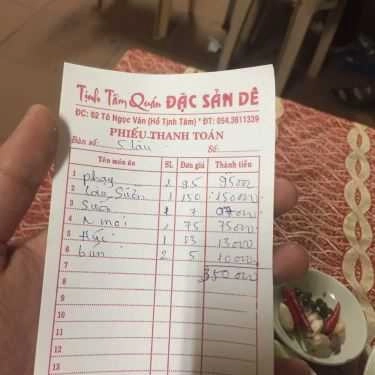 Tịnh Tâm Quán ĐẶC SẢN DÊ
ĐC: 02 Tô Ngọc Vân (Hồ Tịnh Tâm) * ĐT: 054.3611339
PHIẾU THANH TOÁN
Bàn số: 5 lầu Số:
Tên món ăn SL Đơn giá Thành tiền
1 1 95 95000
2 1 150 150000
3 1 7 07000
4 1 75 75000
5 1 13 13000
6 bún 2 5 10000
7 350000
8
9
10
11
12
13